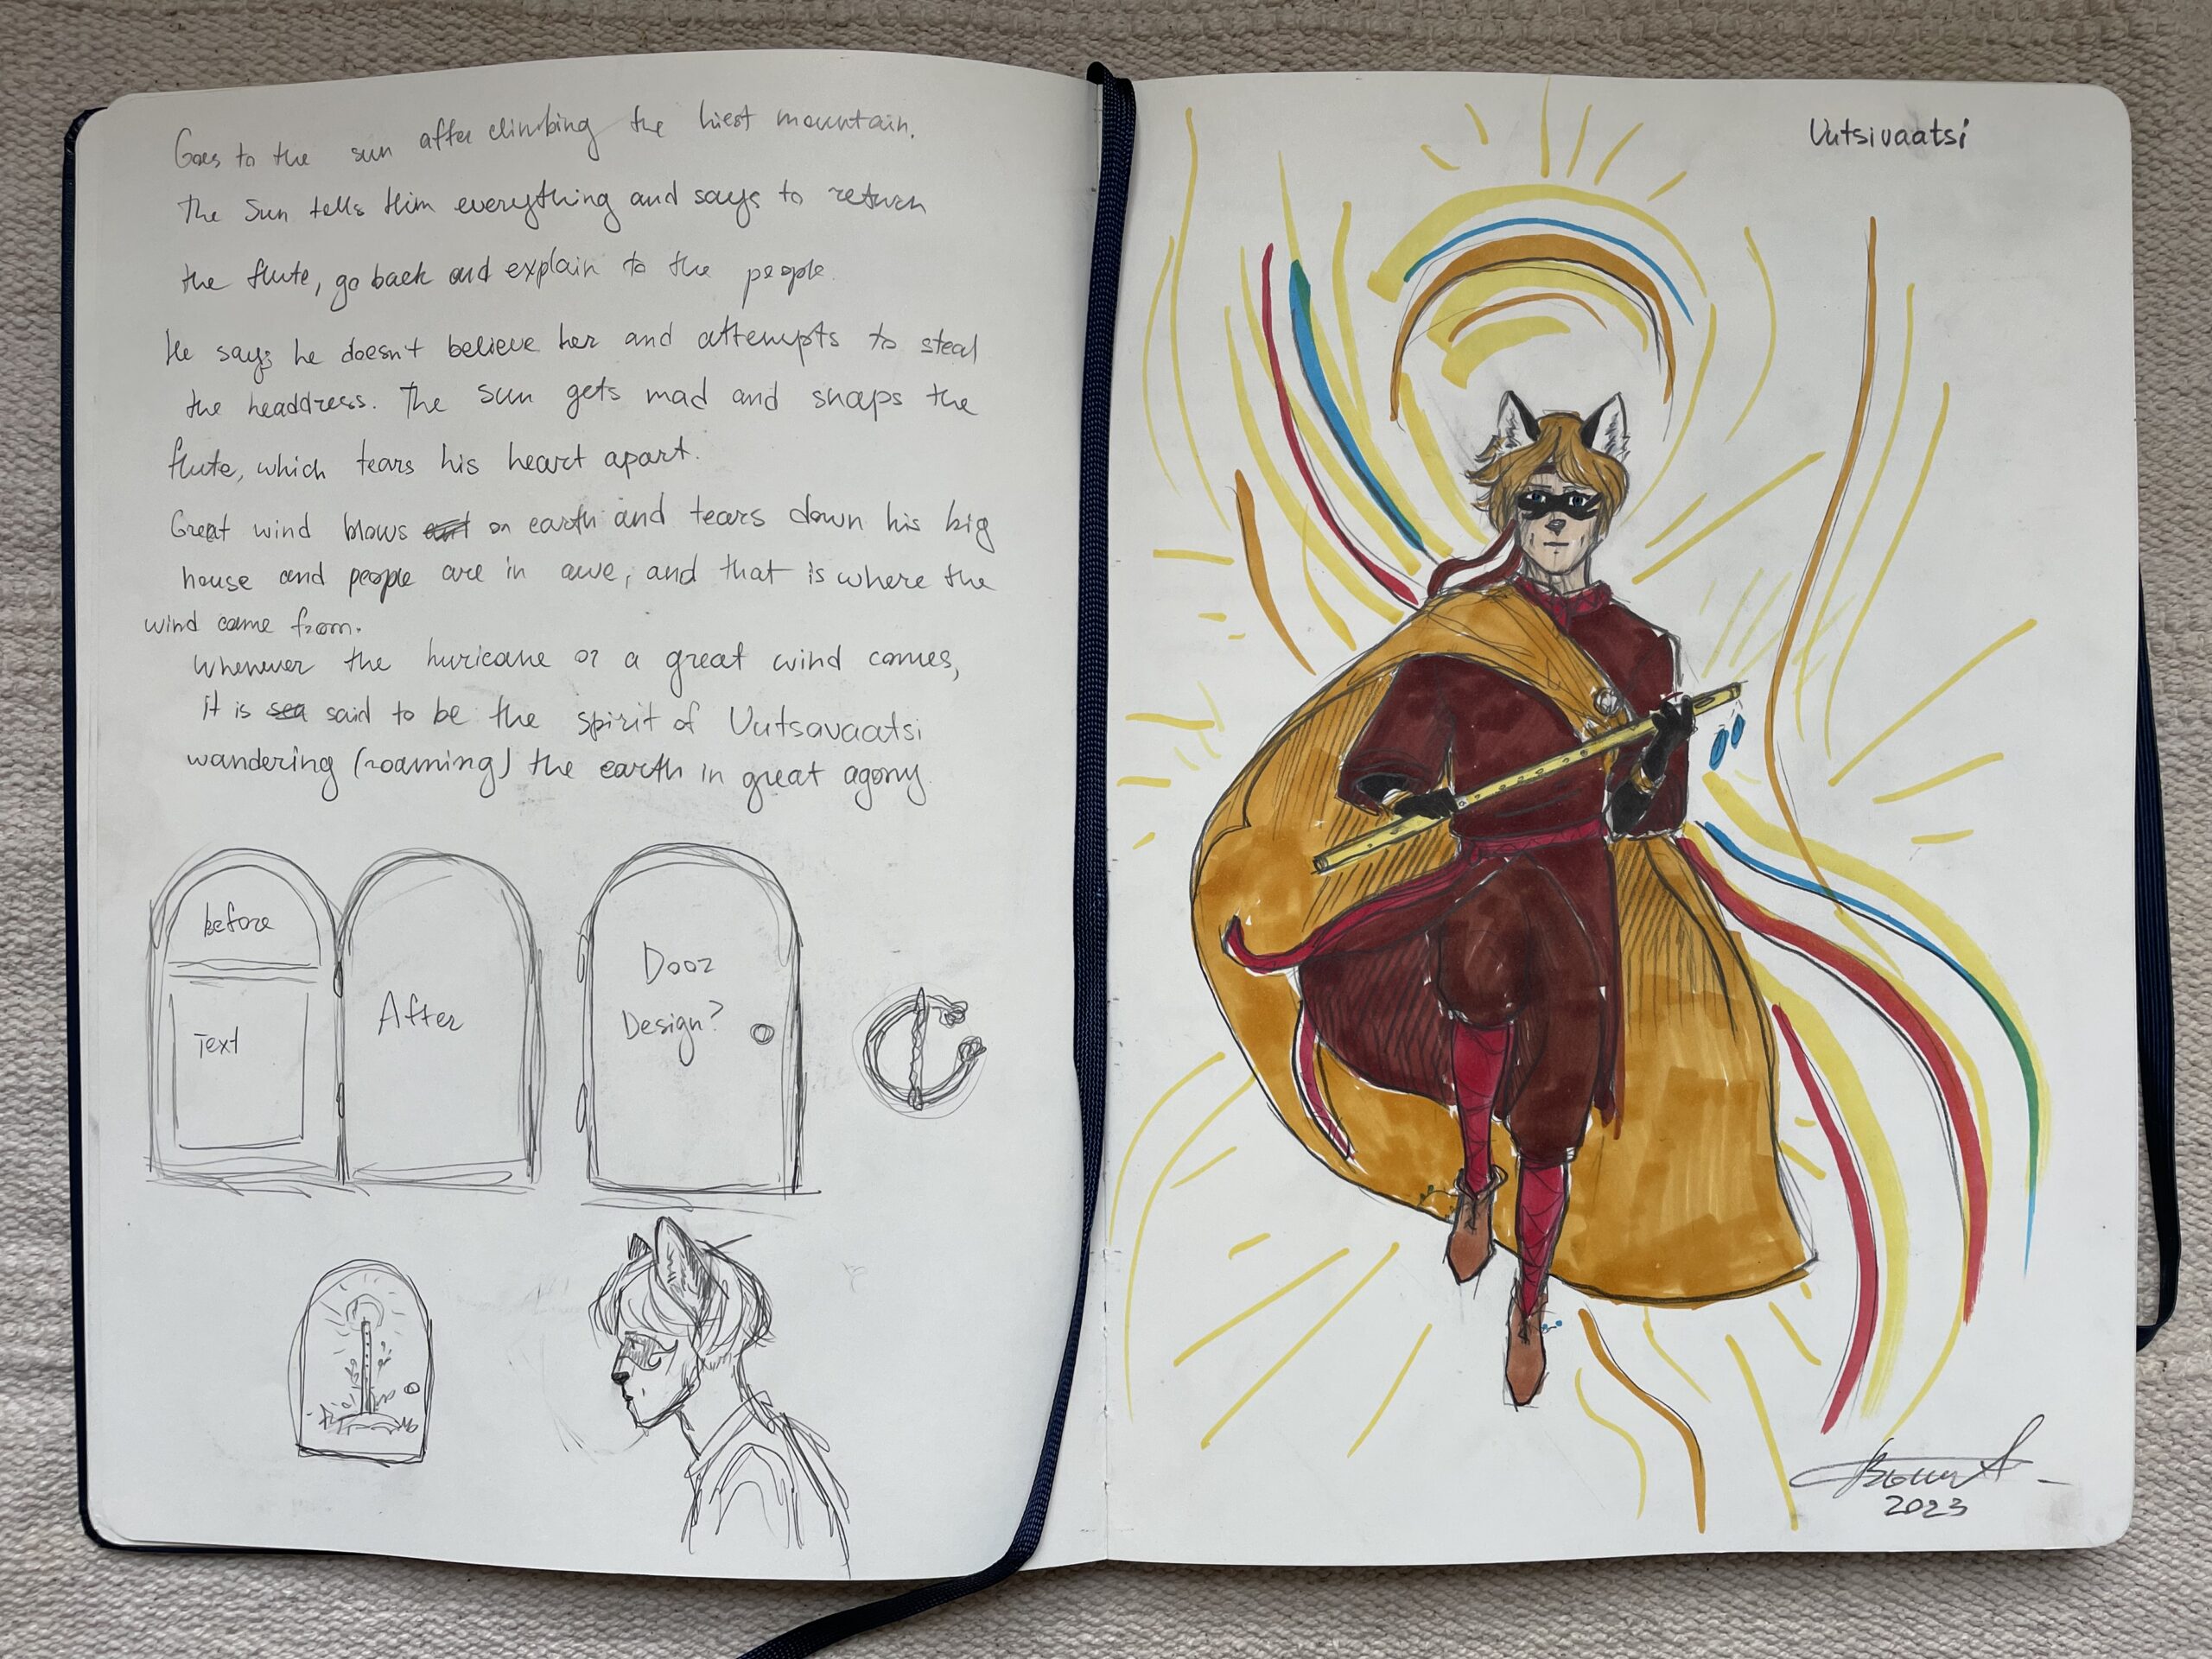 Goes to the sun after climbing the hiest mountain.
The Sun tells Him everything and says to return
the flute, go back and explain to the people.
He says he doesn't believe her and attempts to steal
the headdress. The sun gets mad and snaps the
flute, which tears his heart apart.
Great wind blows on earth and tears down his big
house and people are in awe, and that is where the
wind came from.
Whenever the huricane or a great wind comes,
it is said to be the spirit of Uutsavaatsi
wandering (roaming) the earth in great agony.
before
Text
After
Door
Design?
Uutsivaatsi
2023